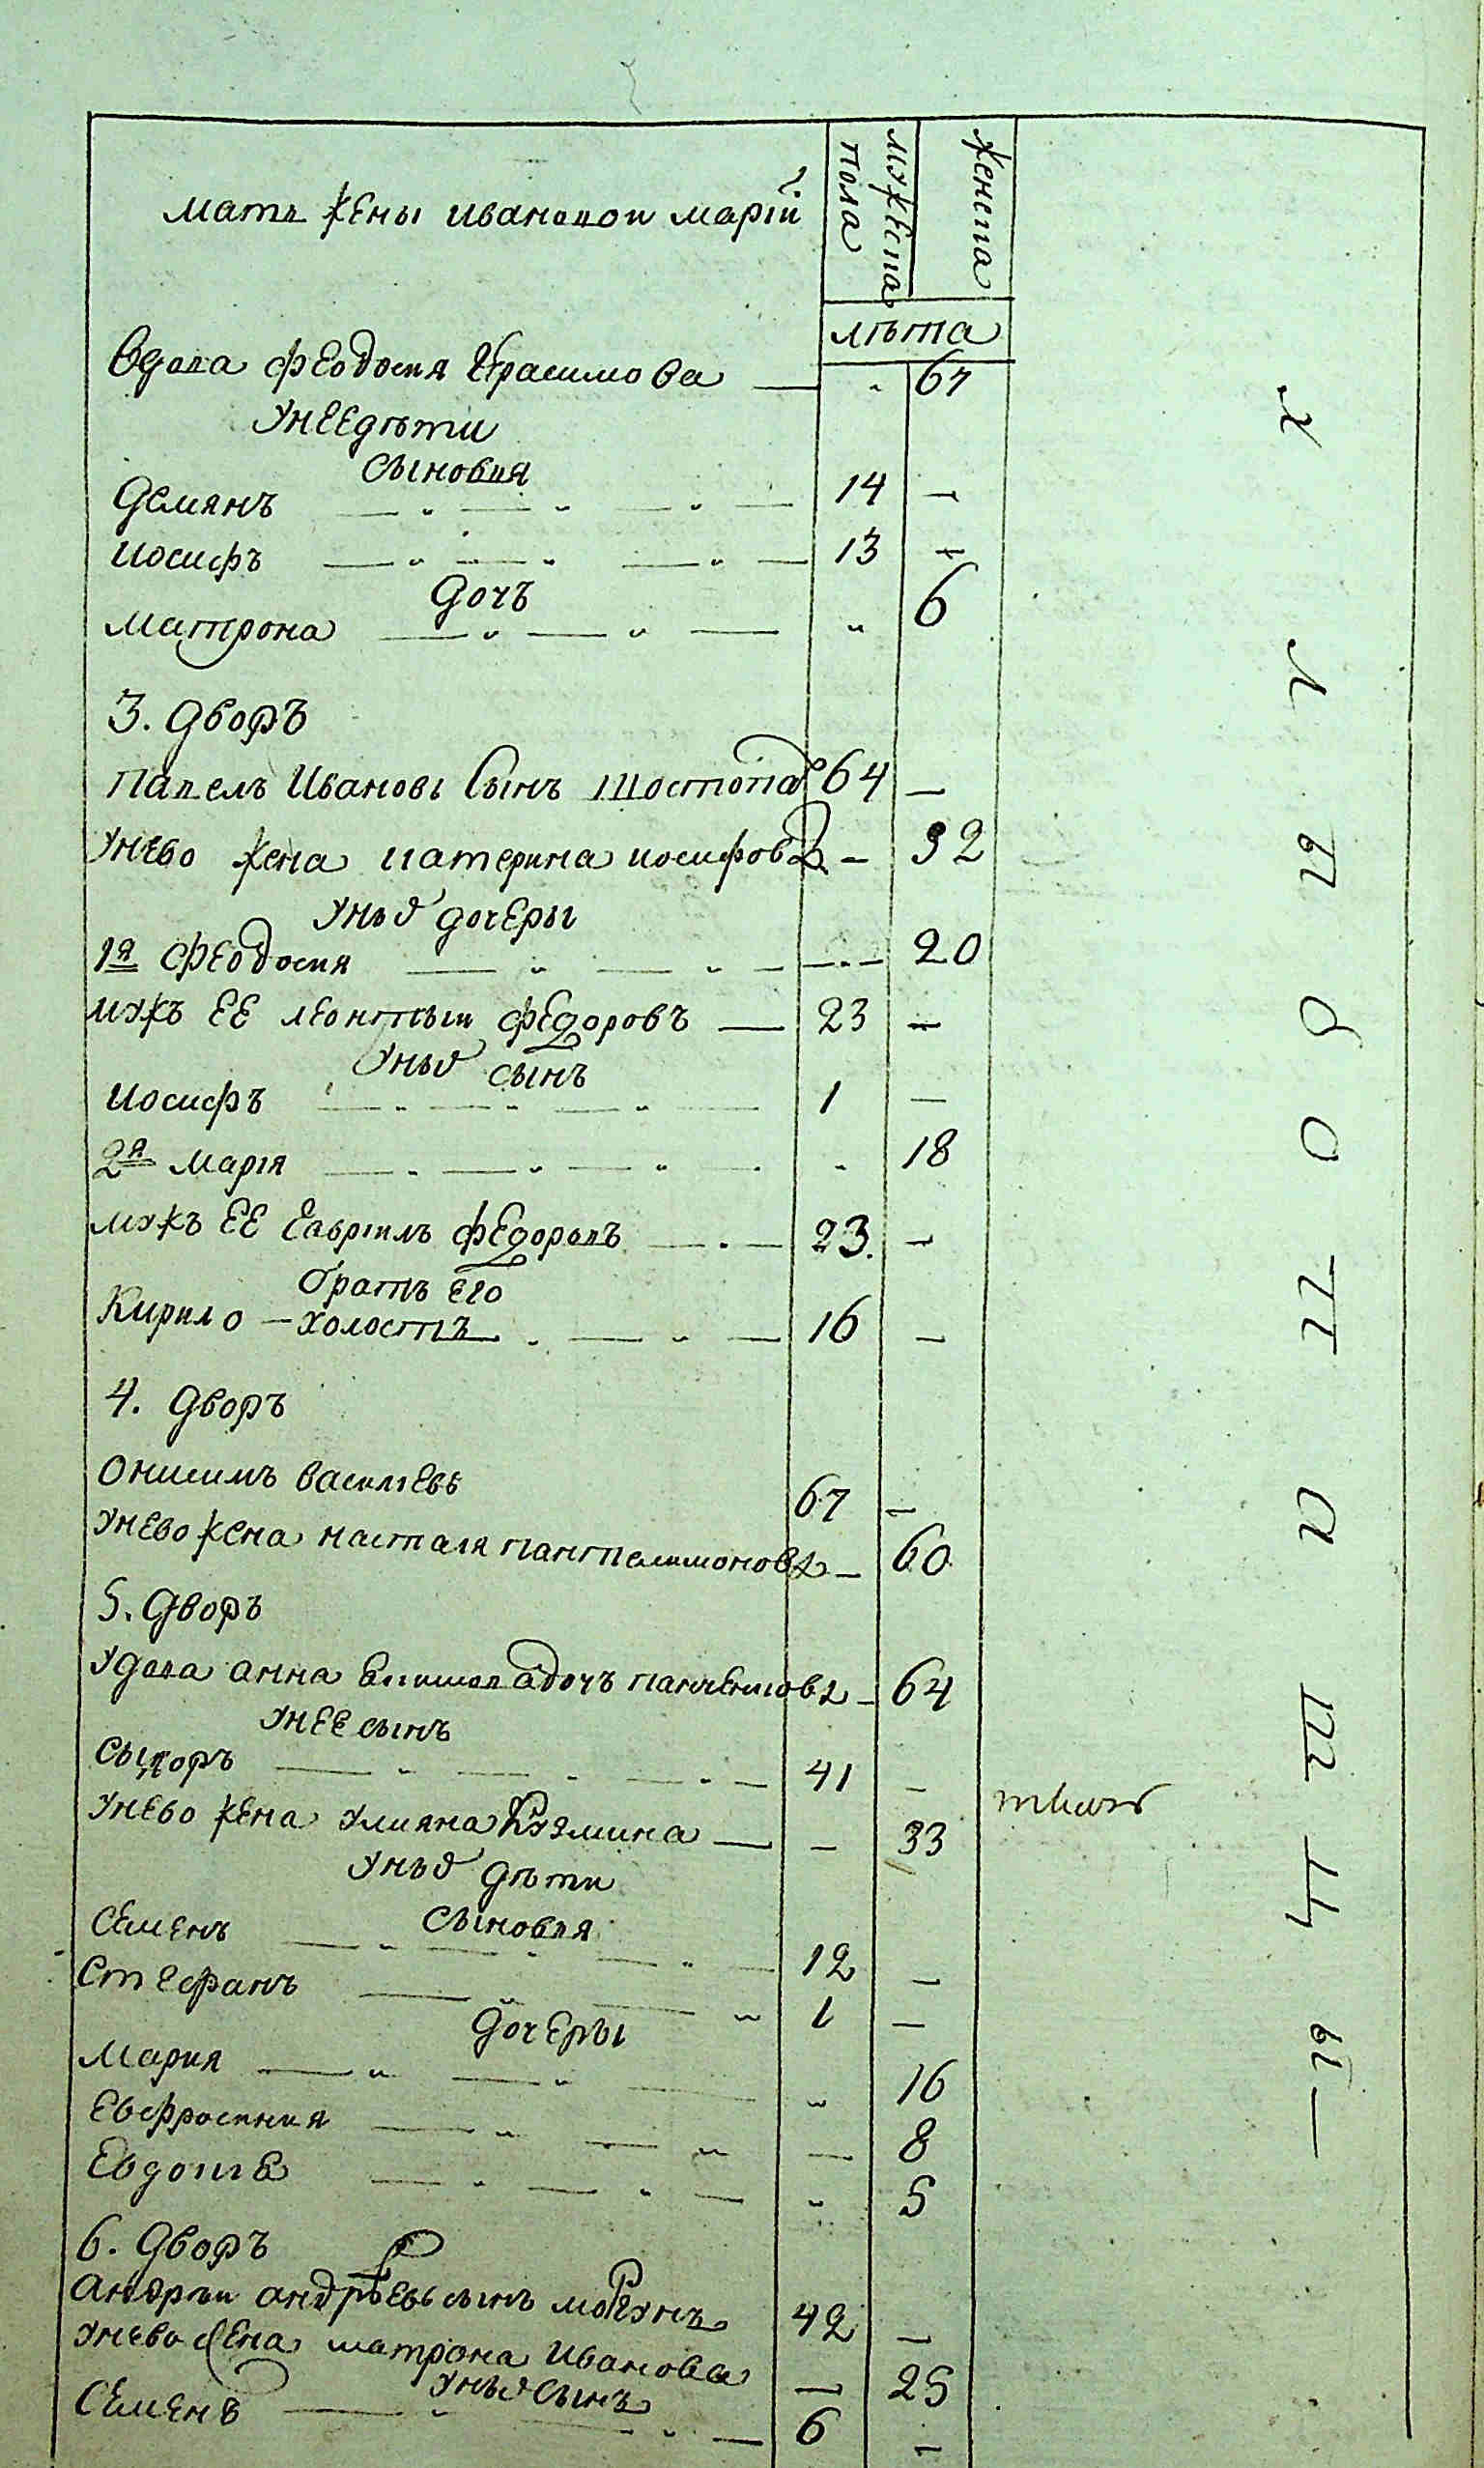 мужеска пола
женска
мать жены ивановои маріи
лѣта
Вдова феодосия Герасимова — „ 67
У нее дѣти
сыновия
Демянъ 14 —
Иосифъ 13 —
дочъ
матрона „ 6
3. Дворъ
Павелъ Ивановъ Сынъ 64 —
У нево жена катерина иосифова — 32
У ныхъ дочеры
1я феодосия — 20
мужъ ее леонтѣи федоровъ — 23 —
У ныхъ сынъ
Иосифъ 1 —
2я марія 18
мужъ ее Гавріилъ федоровъ 23. —
братъ его
Кирило — холостъ 16 —
4. Дворъ
Онисимъ василіевъ 67 —
У нево жена настася пантелимонова — 60
5. Дворъ
Удова анна дочъ 64
У нее сынъ
Сыдоръ 41 —
У нево жена улияна Кузмина — — 33
У ныхъ дѣти
сыновия
Семенъ 12 —
Стефанъ 1 —
дочеры
Мария „ 16
Евфросиния — 8
Евдокия „ 5
6. Дворъ
Андрѣи андрѣевъ сынъ 42 —
У нево жена матрона Иванова — 25
У ныхъ сынъ
Семенъ 6 —